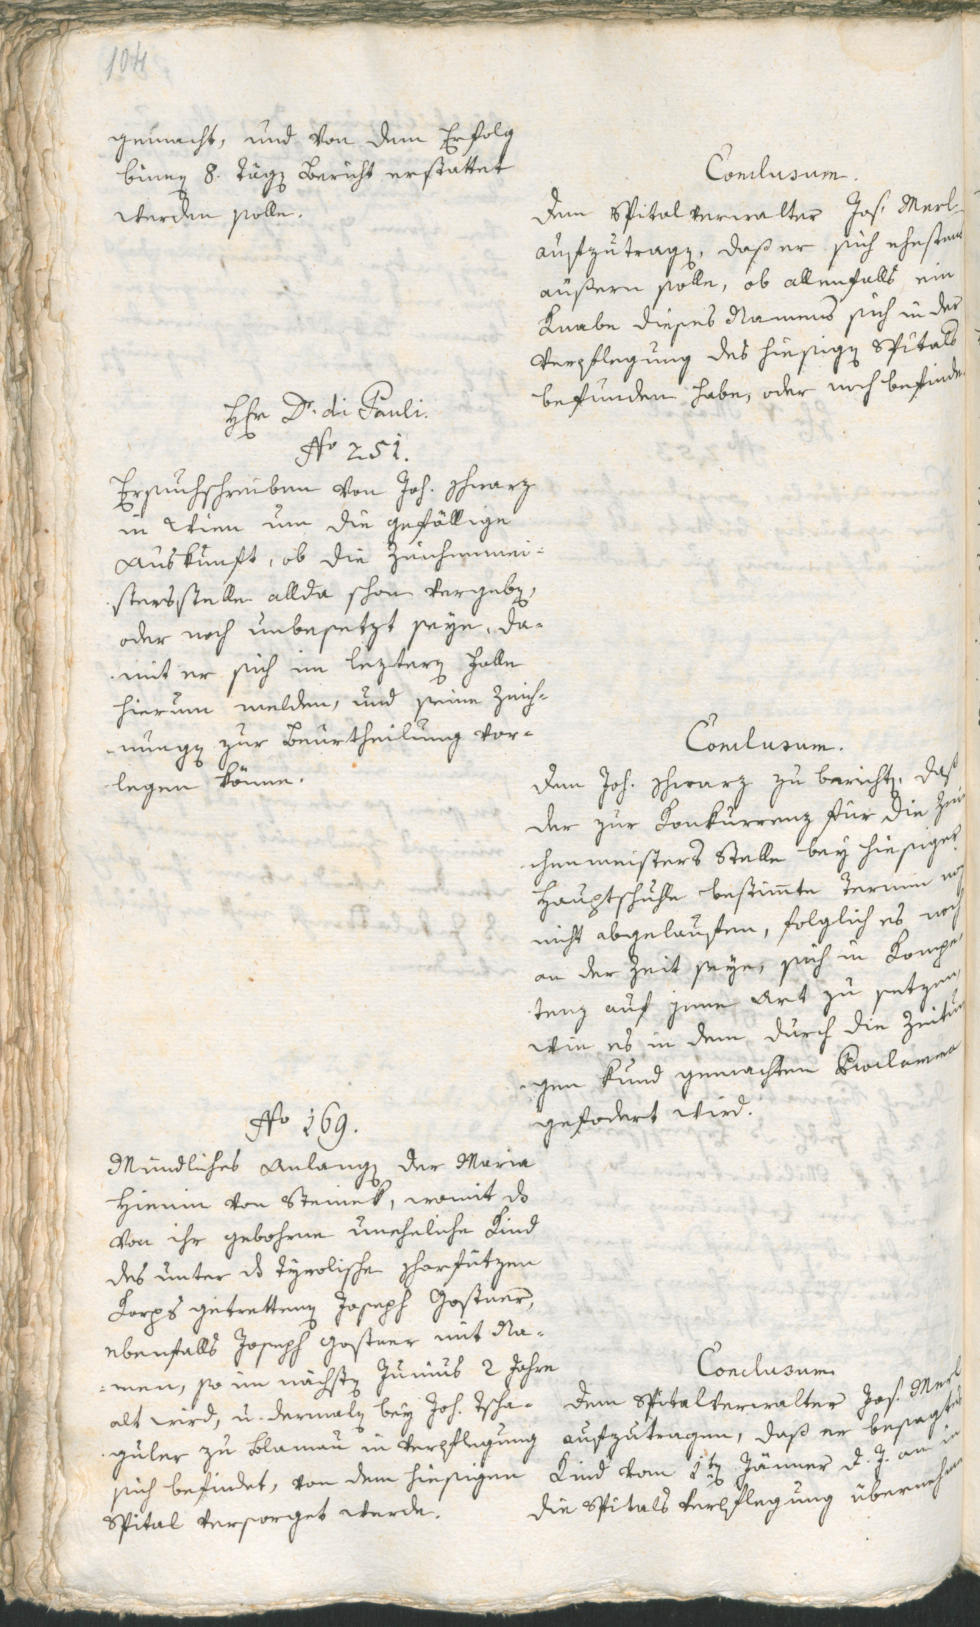 104
gemacht, und von dem Erfolg
binen 8. Tägen Bericht erstattet
werden solle.
Conclusum.
Dem Spitalverwalter Jos. Merl
aufzutragen, daß er sich ehestens
äußern solle, ob allenfalls ein
Knabe dieses Namens sich in der
Verpflegung des hiesigen Spitals
befunden habe, oder noch befinde
Hr Dr. di Pauli.
No 251.
Ersuchschreiben von Joh. Schwarz
in Wien um die gefällige
Auskunft, ob die Zeichenmei-
stersstelle allda schon vergeben,
oder noch unbesetzt seye, da-
mit er sich im leztern Falle
hierum melden, und seine Zeich-
nungen zur Beurtheilung vor-
legen könne.
Conclusum.
Dem Joh. Schwarz zu berichten, daß
der zur Konkurrenz für die Zei
chenmeisters Stelle bey hiesiger
Hauptschuhle bestimmte Termin no
nicht abgelaufen, folglich es noch
an der Zeit seye, sich in Kompe-
tenz auf jene Art zu setzen,
wie es in dem durch die Zeitun
gen kund gemachten Proclama
gefodert wird.
No 169.
Mündliches Anlangen der Maria
von Steinek, womit das
von ihr gebohrne uneheliche Kind
des unter das Tyrolische Scharfützen
Korps getrettenen Joseph Gostner,
ebenfalls Joseph Gostner mit Na-
men, so im nächsten Junius 2 Jahre
alt wird, u. dermalen bey Joh. Tscha-
guler zu Blumau in Verpflegung
sich befindet, von dem hiesigen
Spital versorget werde.
Conclusum
Dem Spitalverwalter Jos. Merl
aufzutragen, daß er besagtes
Kind vom 1ten Jänner d. J. an in
die Spitals Verpflegung übernehme